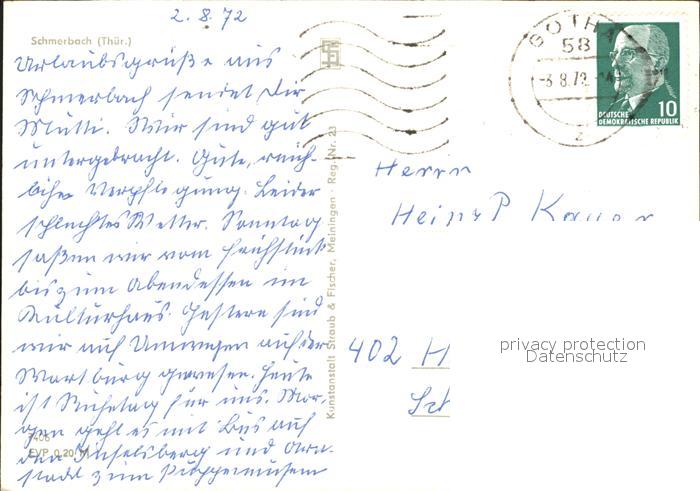 2.8.72
Schmerbach (Thür.)
Urlaubsgrüße aus
Schmerbach sendet Dir
Mutti. Wir sind gut
untergebracht. Gute, reich-
liche Verpflegung. Leider
schlechtes Wetter. Sonntag
saßen wir vom Frühstück
bis zum Abendessen im
Kulturhaus. Gestern sind
wir auf Umwegen auf der
Wartburg gewesen. Heute
ist Ruhetag für uns. Mor-
gen geht es mit Bus auf
den Inselsberg und Arn-
stadt zum Puppenmuseum
EVP 0,20 M
Kunstanstalt Straub & Fischer, Meiningen · Reg.-Nr. 23
GOTHA
58
-3.8.72
z
DEUTSCHE
DEMOKRATISCHE REPUBLIK
10
Herrn
Heinz P
402 H
privacy protection
Datenschutz